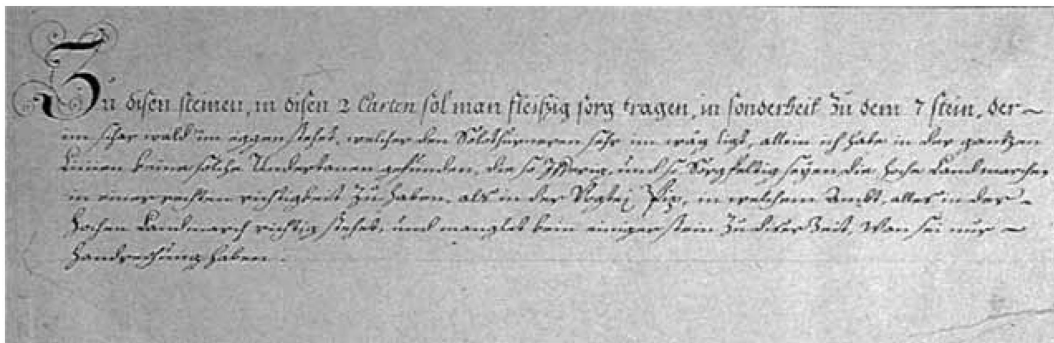 Zu disen steinen, in disen 2 Carten sol man fleißig sorg tragen, in sonderheit Zu dem 7 stein, der
im wald im eggen stehet, welcher den Solothurneren sehr im wäg ligt, allein ich habe in der gantzen
Linien keine solche Undertanen gefunden, die so Ifferig, und so Sorgfeltig seyen die hohe Landmarchen
in einer rechten richtigkeit Zu haben, als in der Vogtej Pip, in welchem Ambt, alles in der
hochen Landmarch richtig stehet, und manglet kein einiger stein Zu diser Zeit, Wan sei nur
handreichung haben.